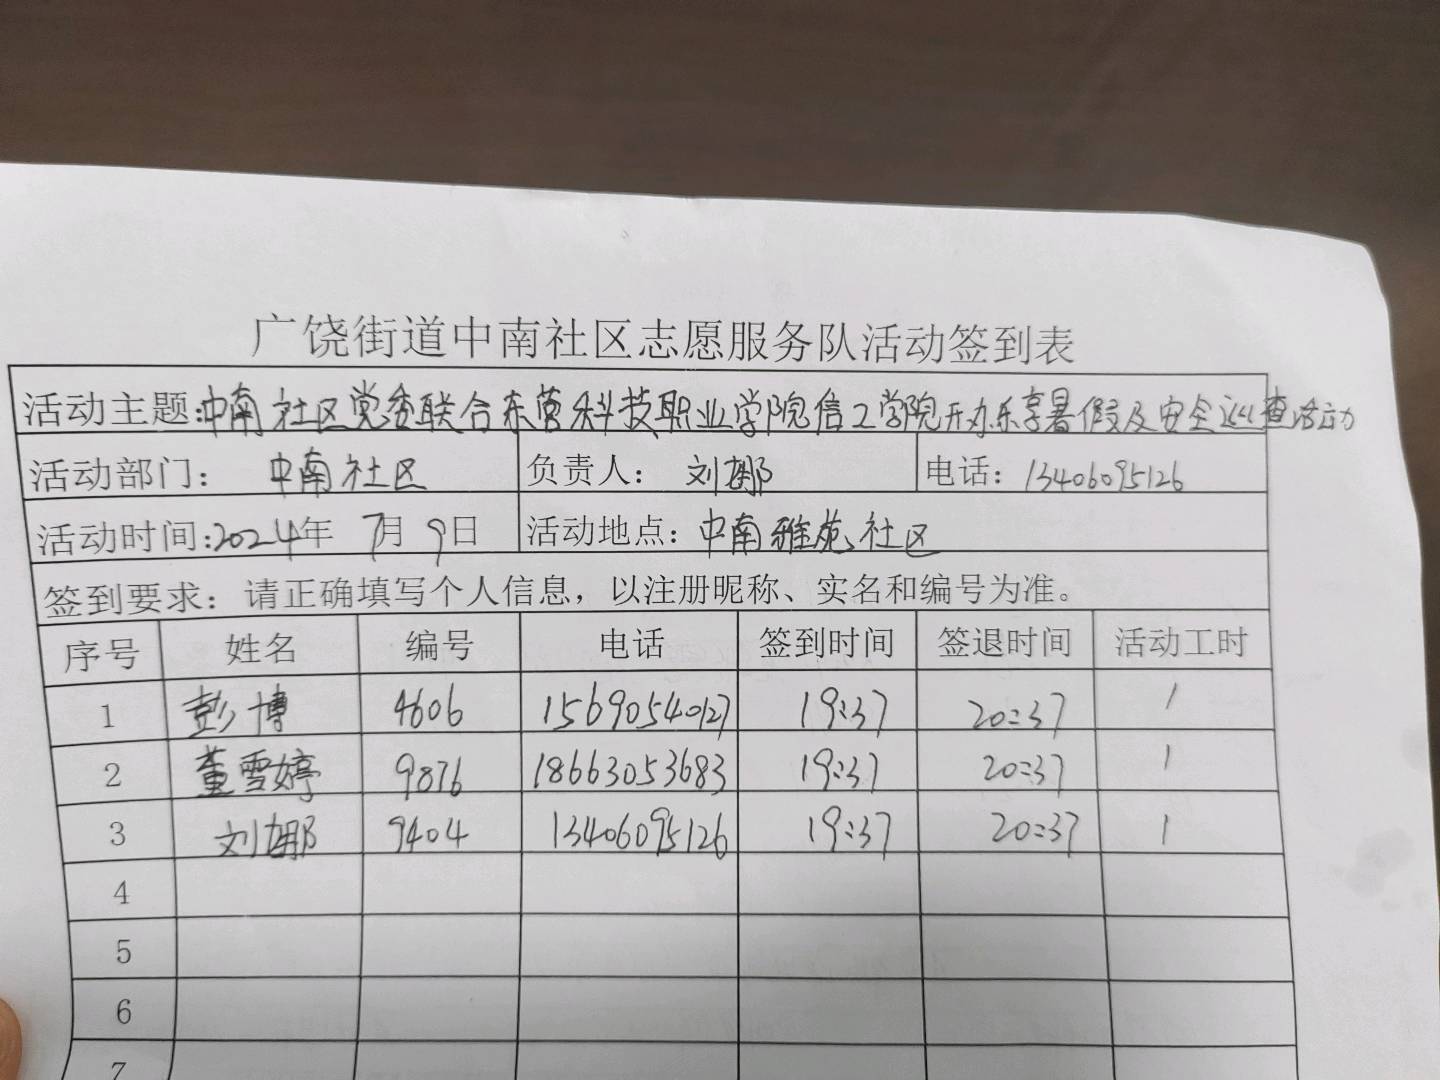 广饶街道中南社区志愿服务队活动签到表
活动主题:中南社区党委联合东营科技职业学院信工学院开办乐享暑假及安全巡查活动
活动部门: 中南社区 负责人: 刘娜 电话: 13406095126
活动时间:2024年 7月 9日 活动地点: 中南雅苑社区
签到要求: 请正确填写个人信息，以注册昵称、实名和编号为准。
序号 姓名 编号 电话 签到时间 签退时间 活动工时
1 彭博 4606 15690540127 19:37 20:37 1
2 董雪婷 9876 18663053683 19:37 20:37 1
3 刘娜 9404 13406095126 19:37 20:37 1
4
5
6
7